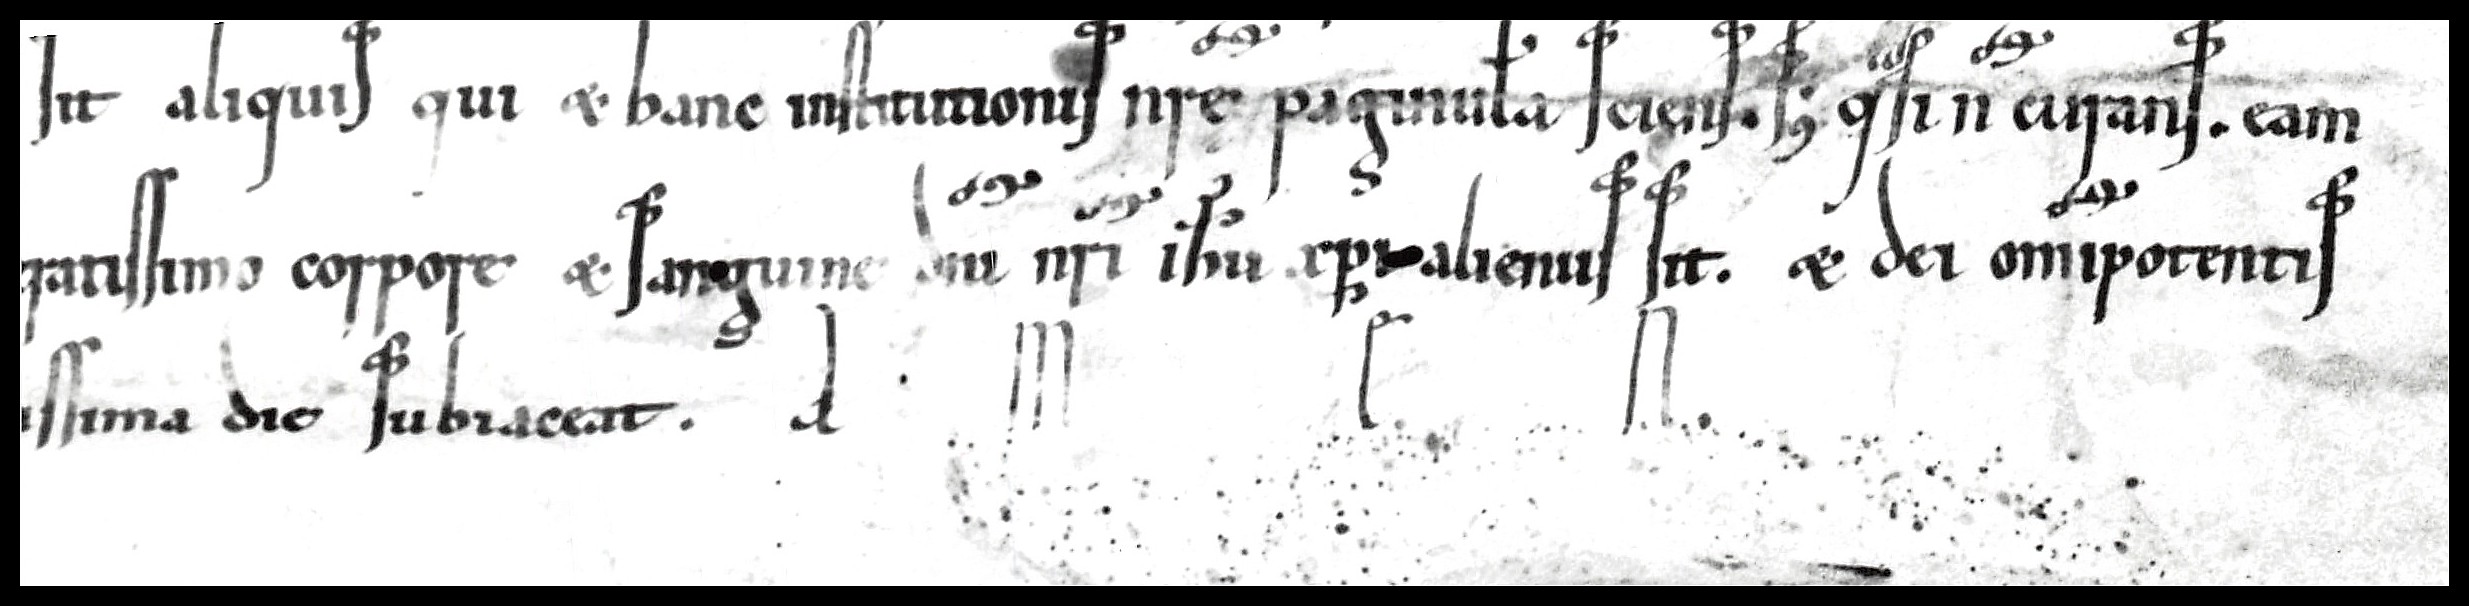 sit aliquis qui & hanc institutionis nr̄e paginulā sciens. sꝫ q̄si n̄ curans. eam
gratissimo corpore & sanguine dn̄i nr̄i ih̄u xp̄i alienus sit. & dei om̄ipotentis
issima die subiaceat. A M E N.